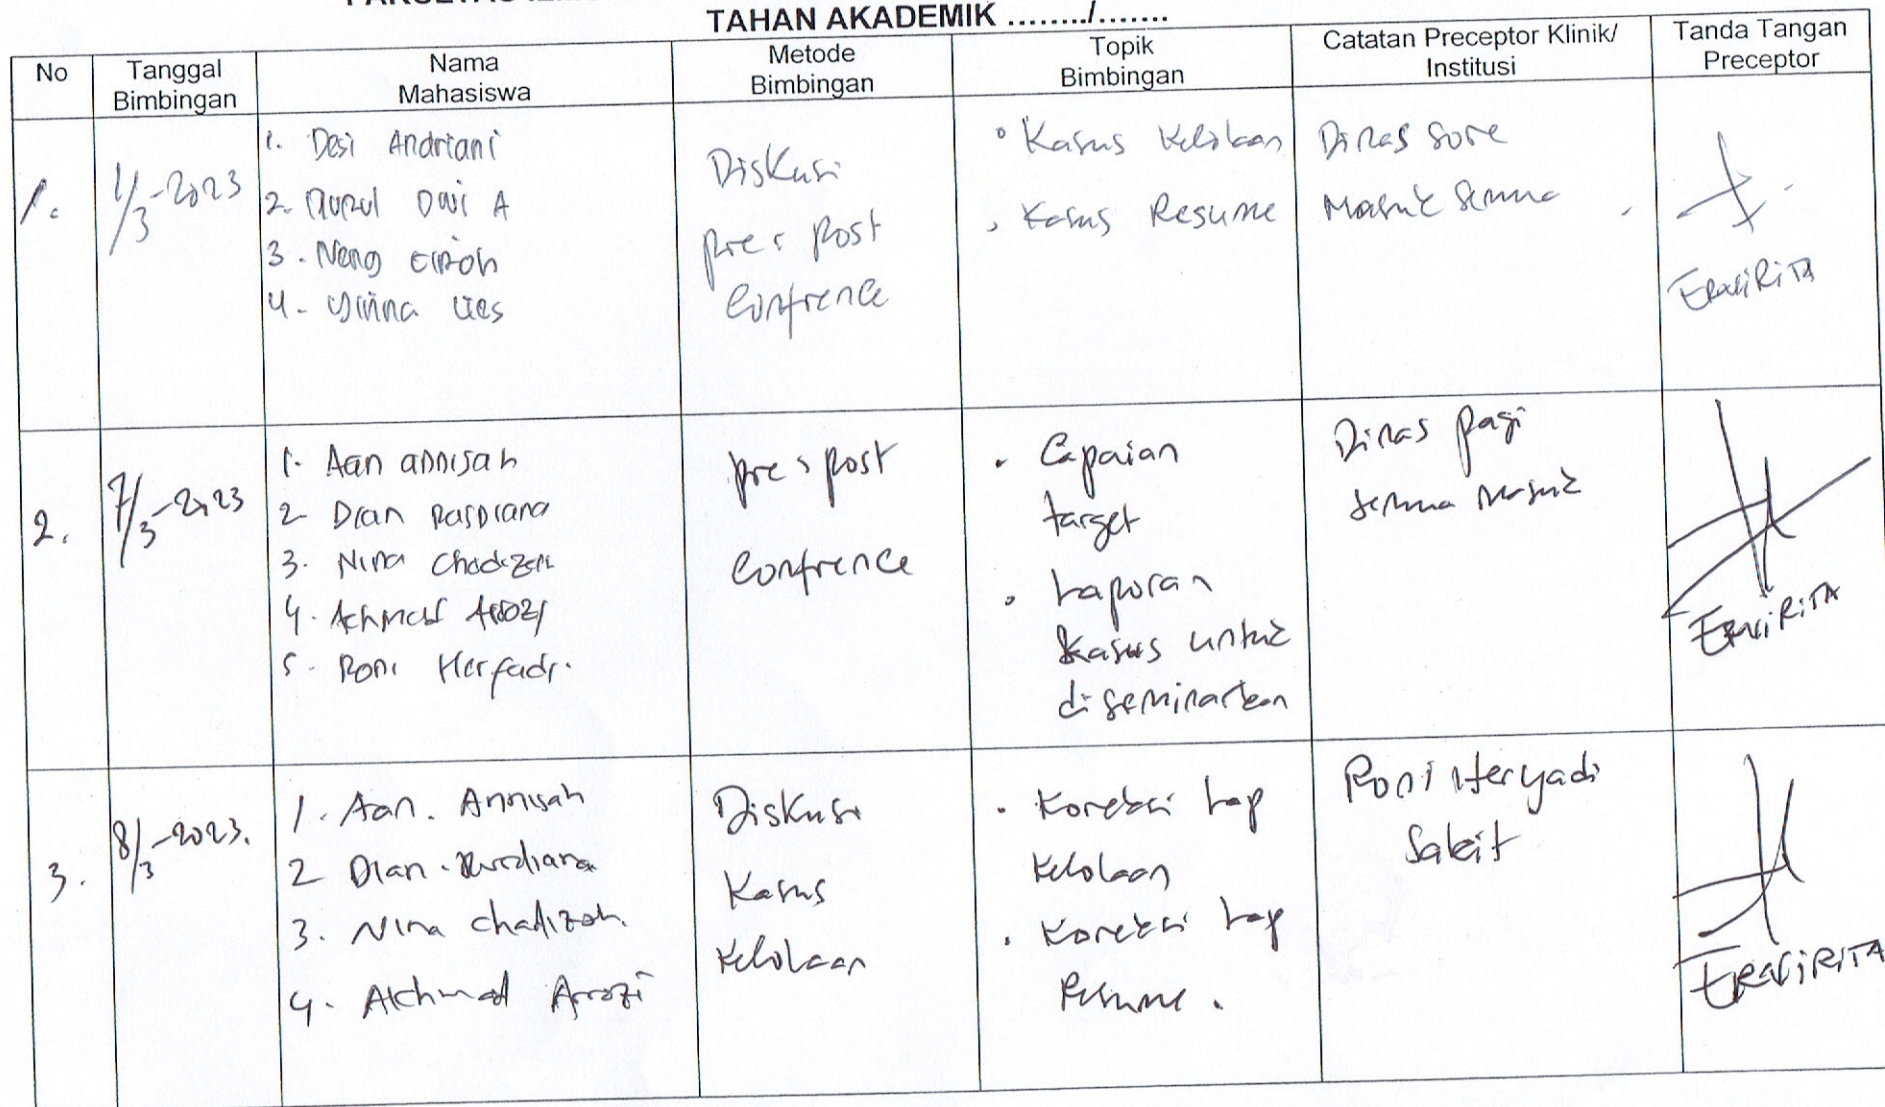 TAHAN AKADEMIK ......../.......
No
Tanggal
Bimbingan
Nama
Mahasiswa
Metode
Bimbingan
Topik
Bimbingan
Catatan Preceptor Klinik/
Institusi
Tanda Tangan
Preceptor
1.
1/3-2023
1. Desi Andriani
2. Nurul Dwi A
3. Neng
4.
Diskusi
pre & post
Confrence
Kasus Kelolaan
Kasus Resume
Dinas Sore
Masuk Semua
2.
7/3-2023
1. Aan annisah
2 Dian
3. Nina
4. Achmad Arrozi
5. Roni
pre & post
Confrence
Capaian
target
Laporan
Kasus untuk
diseminarkan
Dinas pagi
semua masuk
3.
8/3-2023.
1. Aan. Annisah
2 Dian.
3. Nina Chadizah.
4. Akhmad Arrozi
Diskusi
Kasus
Kelolaan
Koreksi Lap
Kelolaan
Koreksi Lap
Resume.
Roni Heryadi
Sakit